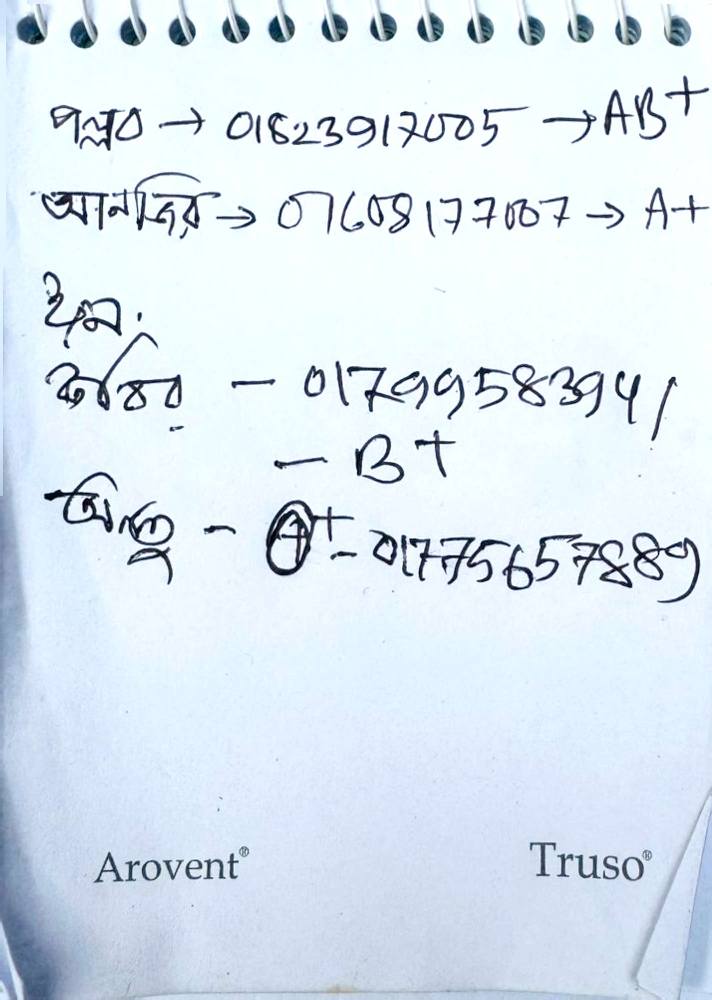 পল্লব → 01823917005 → AB+
তানজির → 01608177007 → A+
কবির - 01799958394/
- B+
- + - 01775657889
Arovent® Truso®